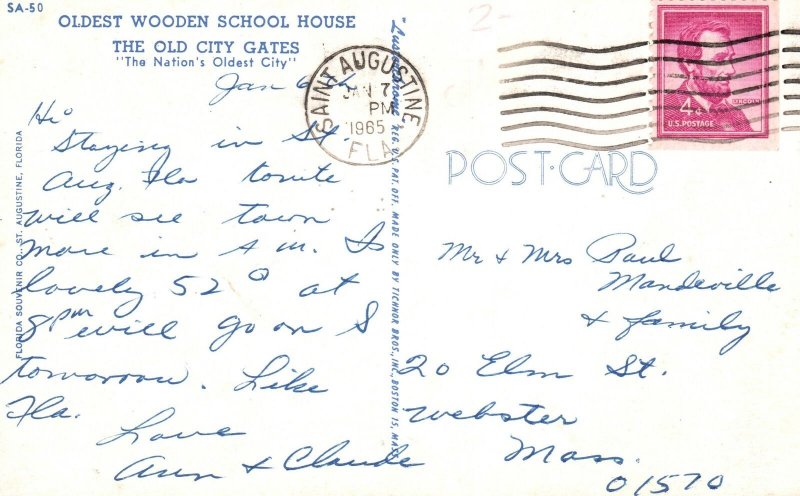 SA-50
OLDEST WOODEN SCHOOL HOUSE
THE OLD CITY GATES
"The Nation's Oldest City"
Jan 6
Hi
Staying in St.
Aug. Fla tonite
will see town
more in A m. Is
lovely 52° at
8pm will go on S
tomorrow. Like
Fla.
Love
Ann & Claude
FLORIDA SOUVENIR CO., ST. AUGUSTINE, FLORIDA
"Lusterchrome" REG. U.S. PAT. OFF. MADE ONLY BY TICHNOR BROS., INC., BOSTON 15, MASS.
2-
SAINT AUGUSTINE
JAN 7
PM
1965
FLA
LINCOLN
4¢
U.S. POSTAGE
POST-CARD
Mr & Mrs Paul
Mandeville
& family
20 Elm St.
Webster
Mass.
01570